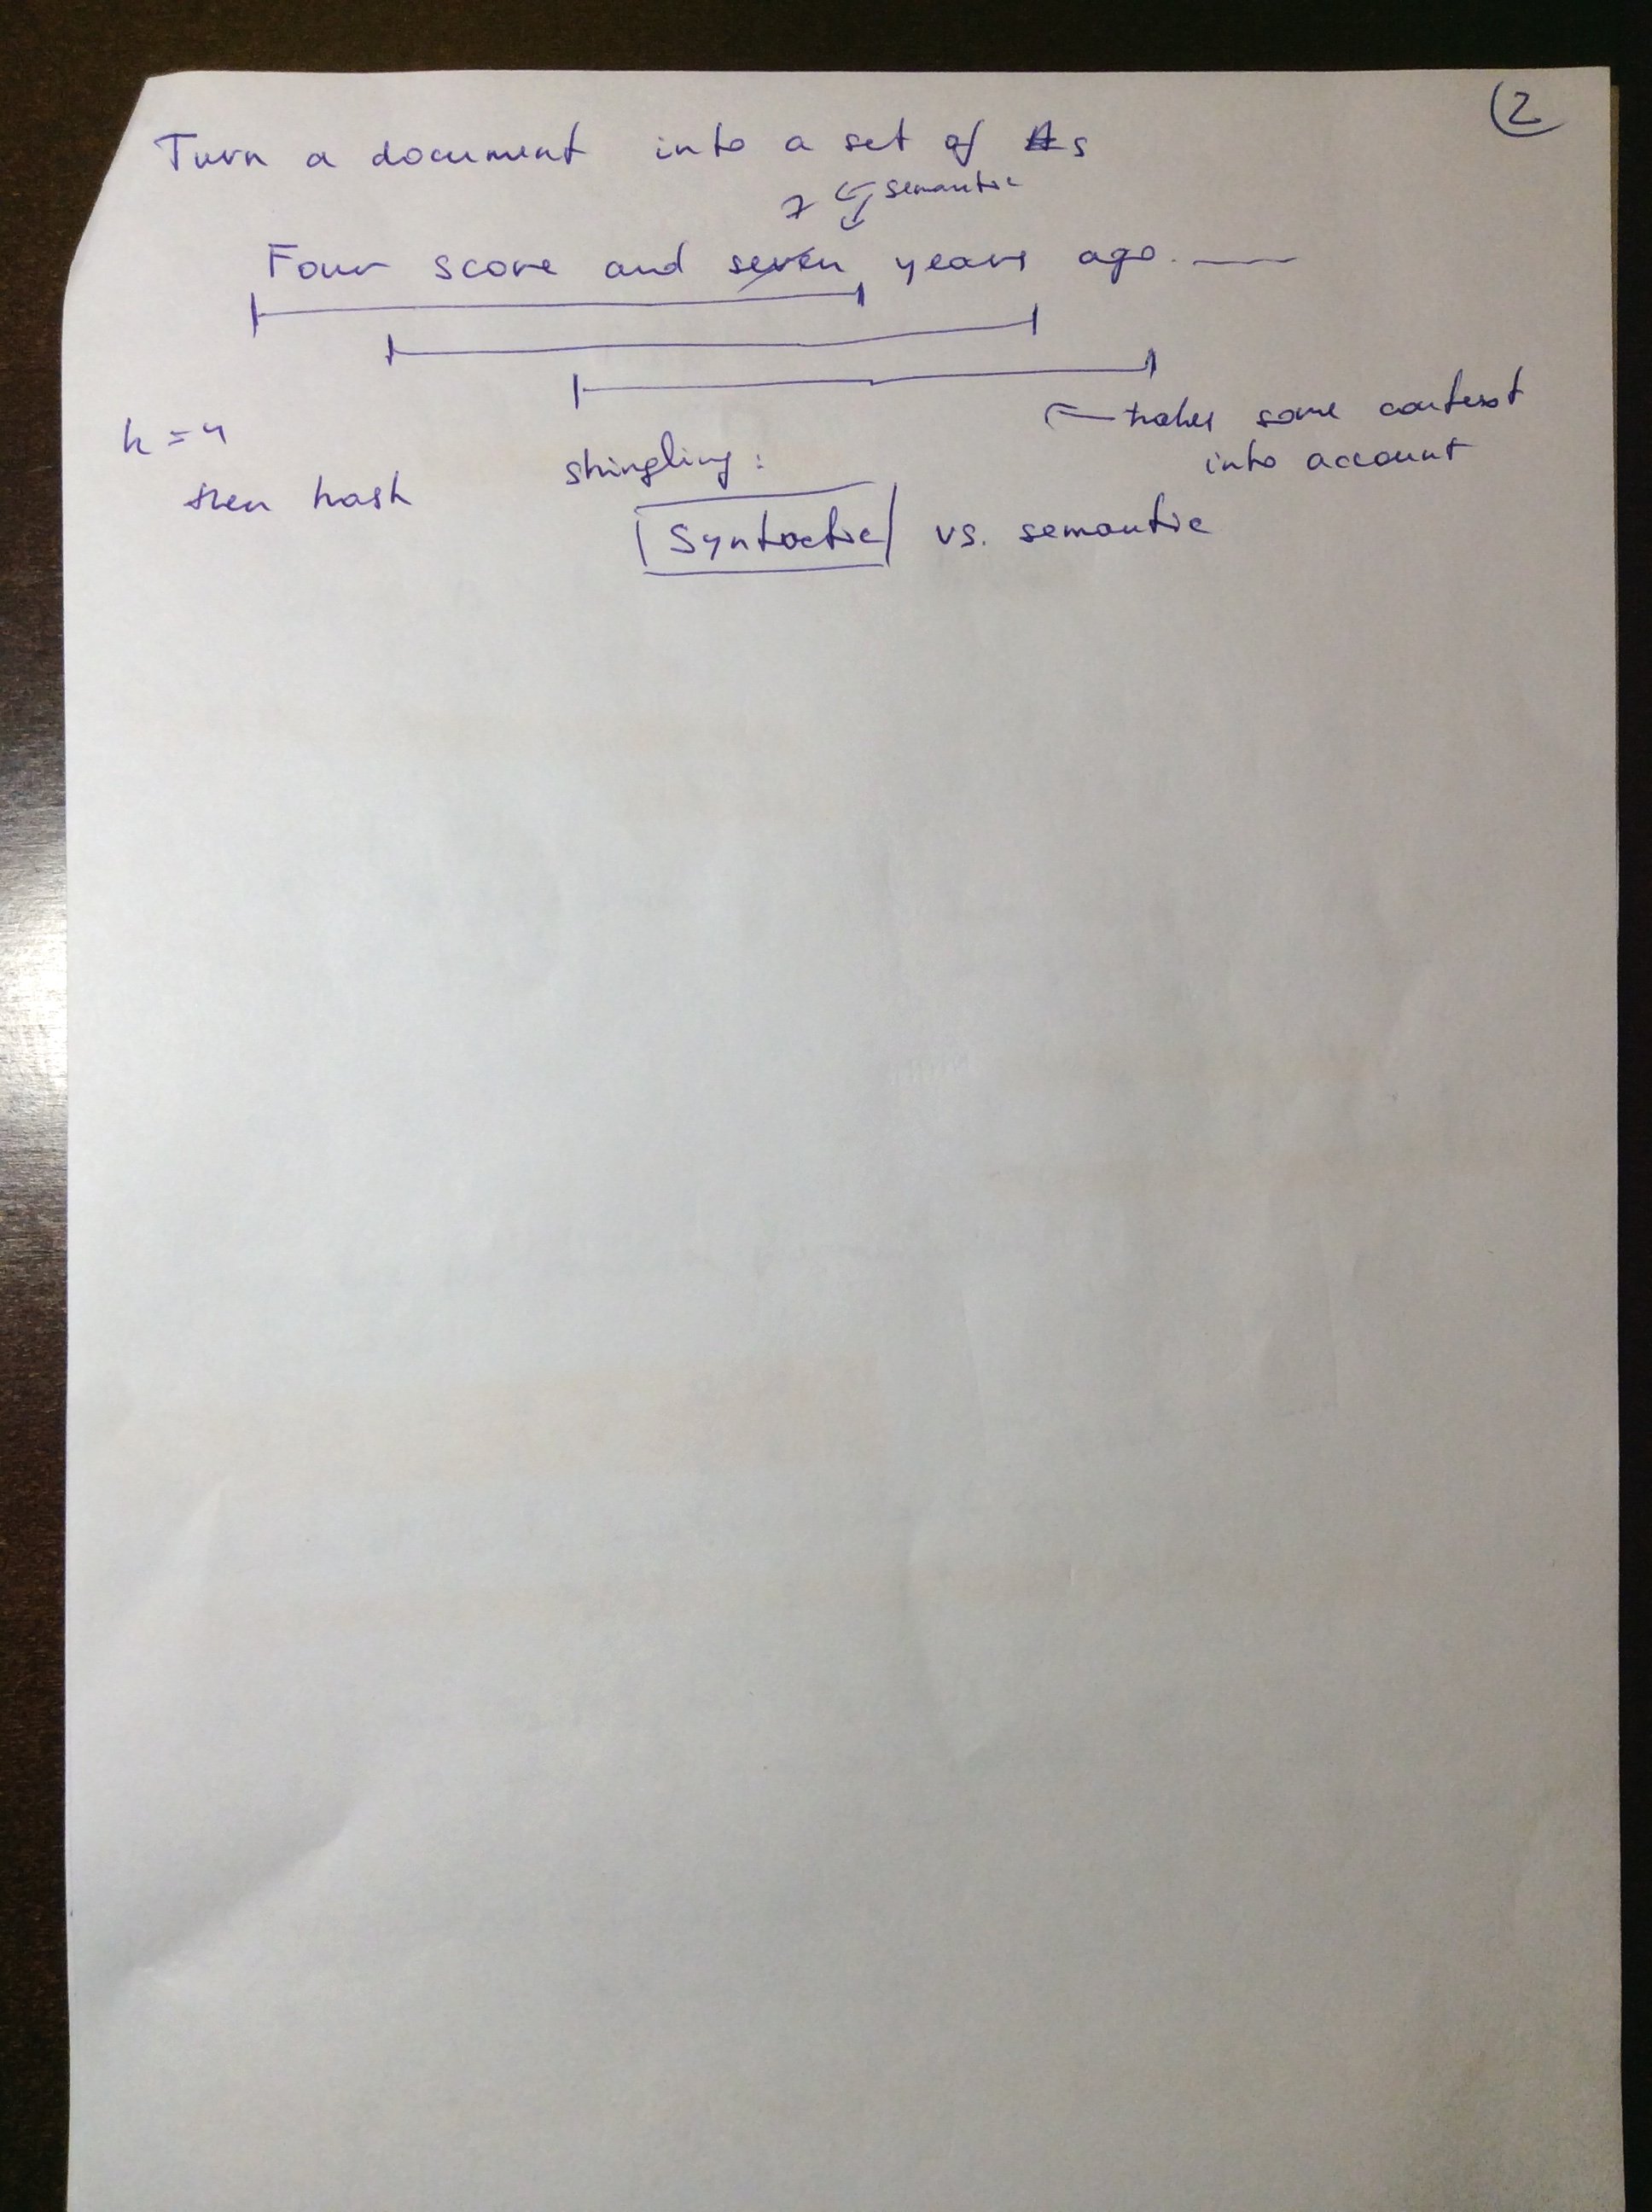 2
Turn a document into a set of #s
7 semantic
Four score and seven years ago.
takes some context
into account
k=4
shingling:
then hash
Syntactic vs. semantic